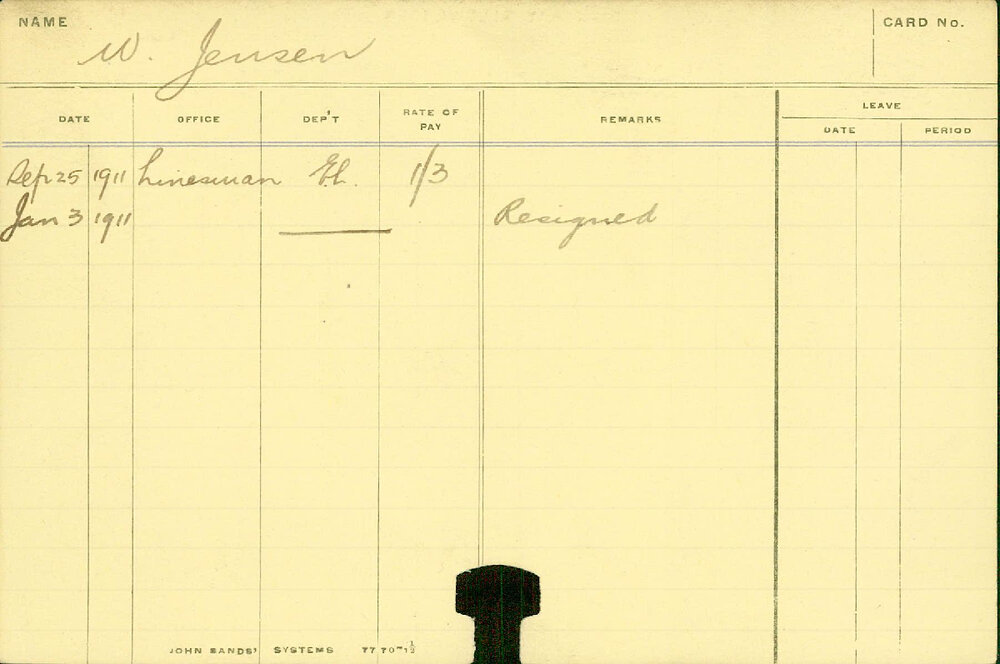 NAME W. Jensen CARD No.
DATE OFFICE DEP'T RATE OF PAY REMARKS LEAVE
DATE PERIOD
Sep 25 1911 Linesman El. 1/3
Jan 3 1911 Resigned
JOHN SANDS' SYSTEMS